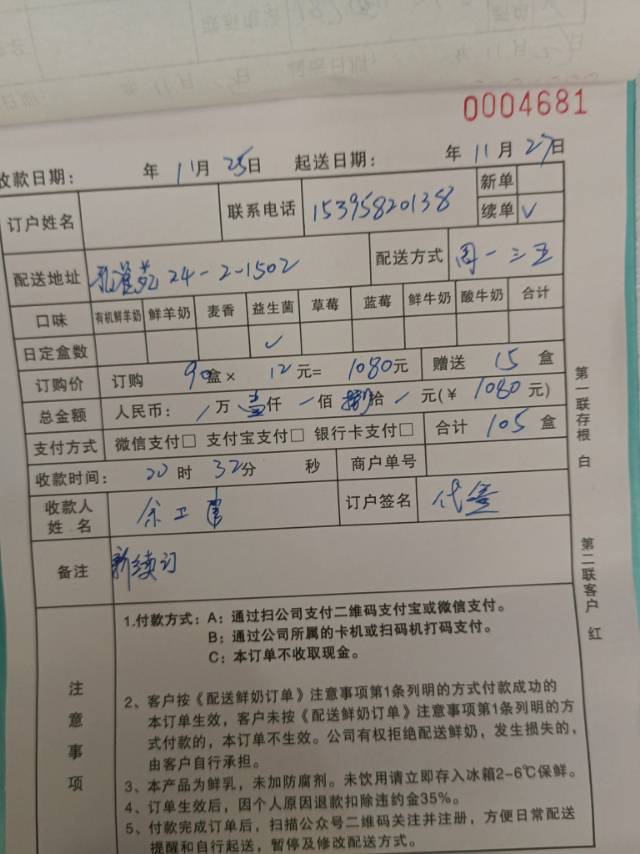 0004681
收款日期： 年11月25日 起送日期： 年11月27日
订户姓名 联系电话 15395820138 新单
续单 √
配送地址 24-2-1502 配送方式 周一三五
口味 有机鲜羊奶 鲜羊奶 麦香 益生菌 草莓 蓝莓 鲜牛奶 酸牛奶 合计
日定盒数 √
订购价 订购 90盒× 12元= 1080元 赠送 15盒
总金额 人民币： /万 壹仟 /佰 捌拾 /元(￥ 1080元)
支付方式 微信支付□ 支付宝支付□ 银行卡支付□ 合计 105盒
收款时间： 20时 32分 秒 商户单号
收款人
姓 名 余卫 订户签名 代签
备注 新续订
第一联存根 白
第二联客户 红
注意事项
1.付款方式：A；通过扫公司支付二维码支付宝或微信支付。
B；通过公司所属的卡机或扫码机打码支付。
C；本订单不收取现金。
2、客户按《配送鲜奶订单》注意事项第1条列明的方式付款成功的
本订单生效，客户未按《配送鲜奶订单》注意事项第1条列明的方
式付款的，本订单不生效。公司有权拒绝配送鲜奶，发生损失的，
由客户自行承担。
3、本产品为鲜乳，未加防腐剂。未饮用请立即存入冰箱2-6℃保鲜。
4、订单生效后，因个人原因退款扣除违约金35%。
5、付款完成订单后，扫描公众号二维码关注并注册，方便日常配送
提醒和自行起送，暂停及修改配送方式。